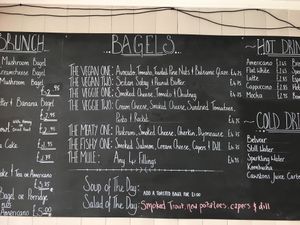 BRUNCH
Mushroom Bagel
Creamcheese Bagel
Mushroom Bagel
2.95
Butter + Banana Bagel
2.95
Cake
Tea or Americano
Bagel or Porridge
Americano £5.00
BAGELS
THE VEGAN ONE: Avocado, Tomato, Toasted Pine Nuts & Balsamic Glaze £4.95
THE VEGAN TWO: Seitan, Satay & Peanut Butter £4.95
THE VEGGIE ONE: Smoked Cheese, Tomato & Chutney £4.95
THE VEGGIE TWO: Cream Cheese, Smoked Cheese, Sundried Tomatoes,
Pesto & Rocket £4.95
THE MEATY ONE: Pastrami, Smoked Cheese, Gherkin, Dijonnaise £4.95
THE FISHY ONE: Smoked Salmon, Cream Cheese, Capers & Dill £4.95
THE MULE: Any 4 Fillings £4.95
Soup of The Day: ADD A TOASTED BAGEL FOR £1.00
Salad of The Day: Smoked Trout, new potatoes, capers & dill
HOT DRIN
Americano
Flat White
Latte
Cappuccino
Mocha
COLD DRI
Belvoir
Still Water
Sparkling Water
Kombucha
Cawstons Juice Carto